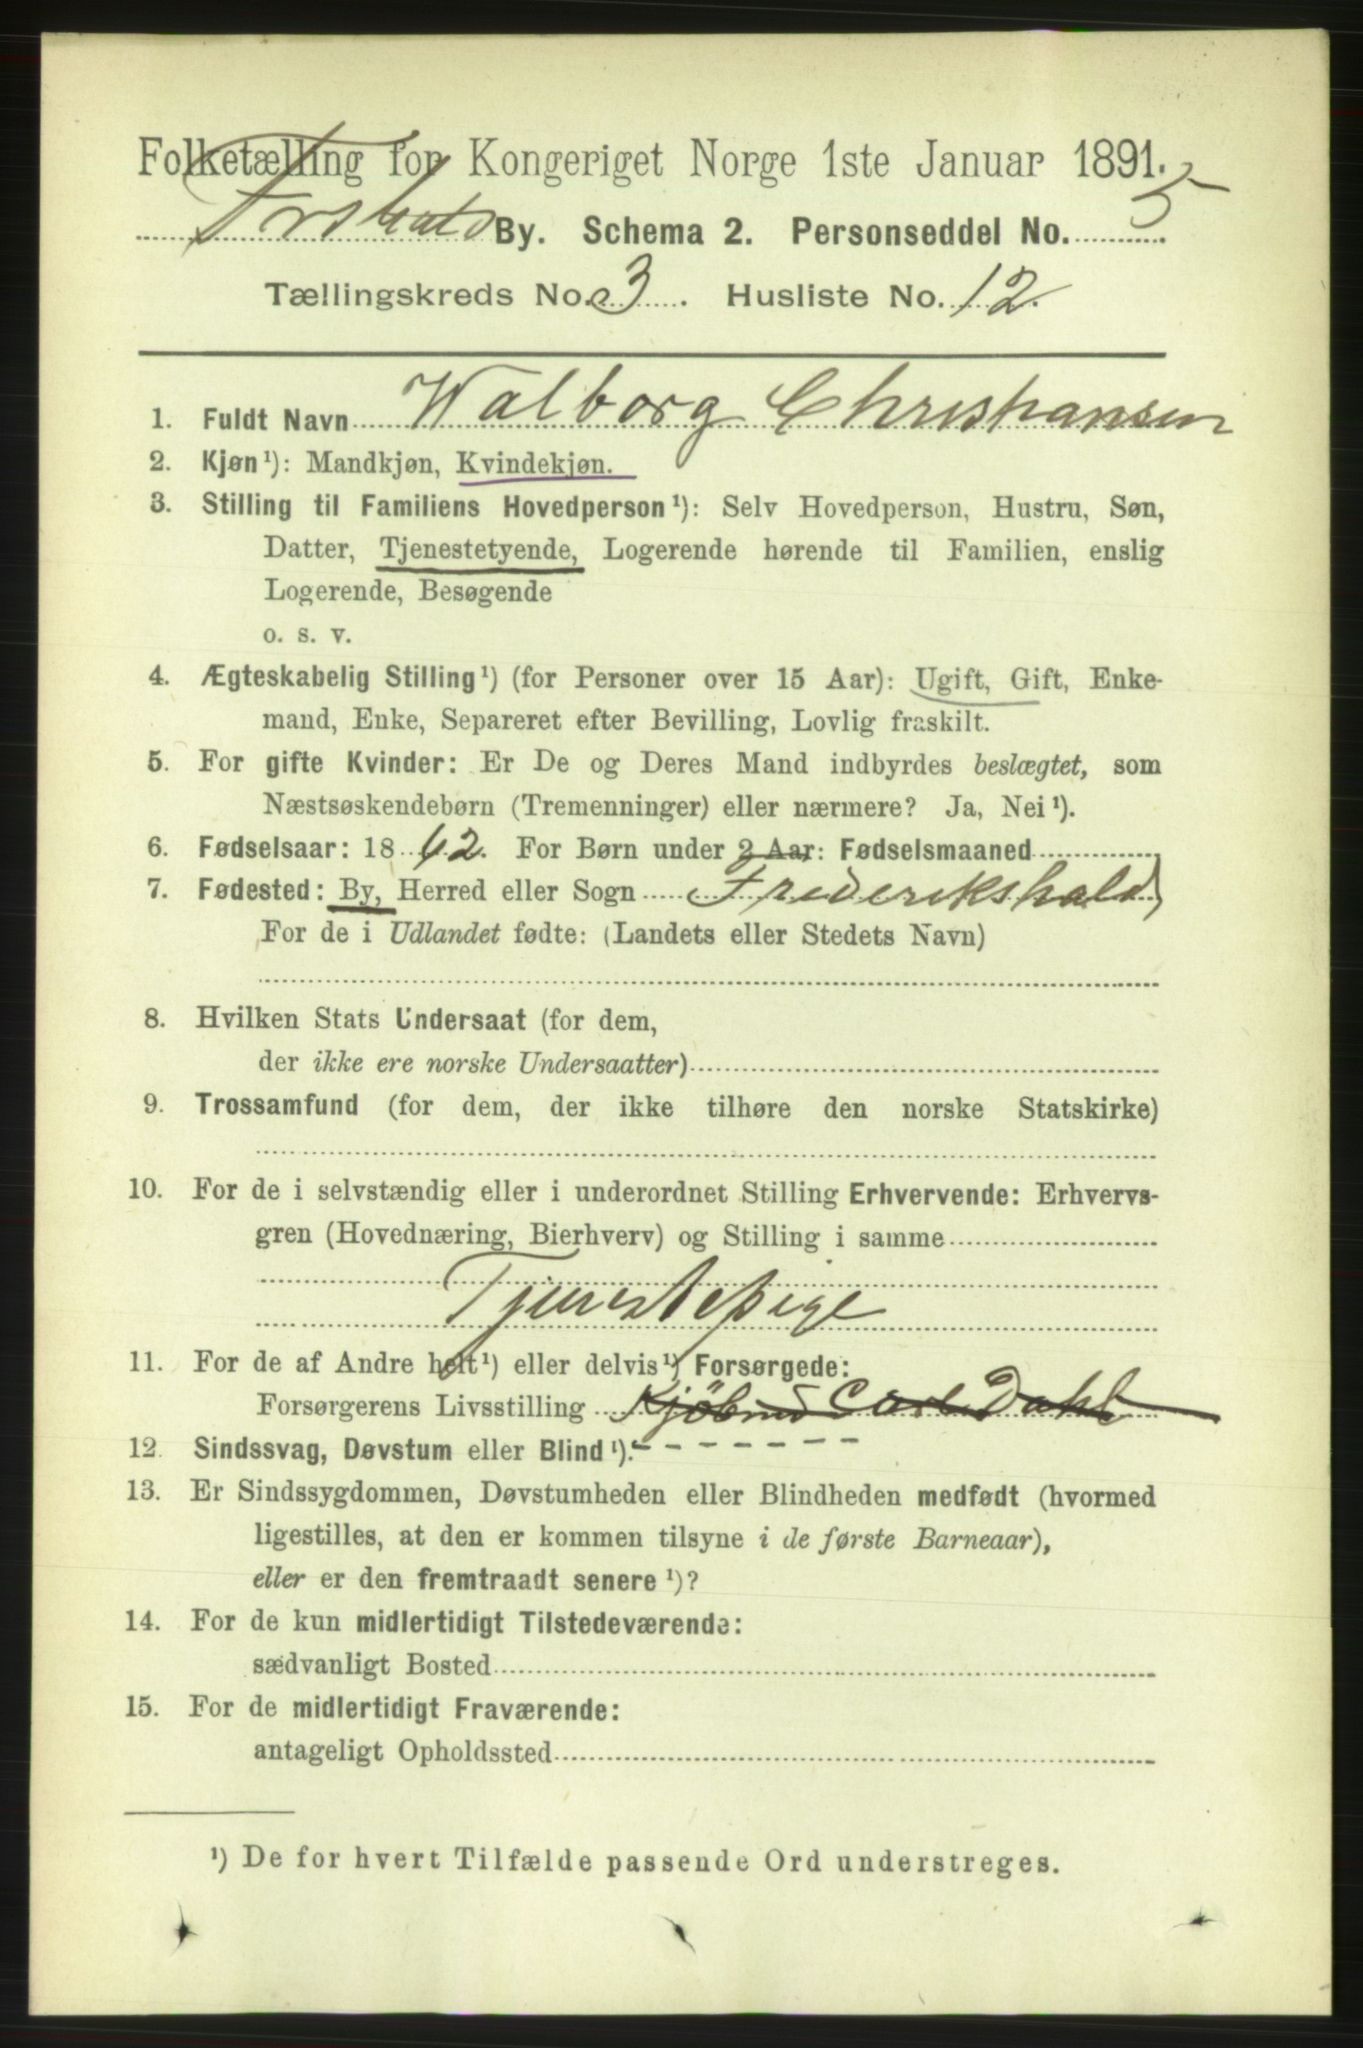 Folketælling for Kongeriget Norge 1ste Januar 1891.
Frshalds By. Schema 2. Personseddel No. 5
Tællingskreds No. 3. Husliste No. 12.
1. Fuldt Navn Walborg Christiansen
2. Kjøn¹): Mandkjøn, Kvindekjøn.
3. Stilling til Familiens Hovedperson¹): Selv Hovedperson, Hustru, Søn,
Datter, Tjenestetyende, Logerende hørende til Familien, enslig
Logerende, Besøgende
o. s. v.
4. Ægteskabelig Stilling¹) (for Personer over 15 Aar): Ugift, Gift, Enke-
mand, Enke, Separeret efter Bevilling, Lovlig fraskilt.
5. For gifte Kvinder: Er De og Deres Mand indbyrdes beslægtet, som
Næstsøskendebørn (Tremenninger) eller nærmere? Ja, Nei¹).
6. Fødselsaar: 1862. For Børn under 2 Aar: Fødselsmaaned
7. Fødested: By, Herred eller Sogn Frederikshald
For de i Udlandet fødte: (Landets eller Stedets Navn)
8. Hvilken Stats Undersaat (for dem,
der ikke ere norske Undersaatter)
9. Trossamfund (for dem, der ikke tilhøre den norske Statskirke)
10. For de i selvstændig eller i underordnet Stilling Erhvervende: Erhvervs-
gren (Hovednæring, Bierhverv) og Stilling i samme
Tjenestepige
11. For de af Andre helt¹) eller delvis¹) Forsørgede:
Forsørgerens Livsstilling Kjöbmd Carl Dahl
12. Sindssvag, Døvstum eller Blind¹). - - - - - - -
13. Er Sindssygdommen, Døvstumheden eller Blindheden medfødt (hvormed
ligestilles, at den er kommen tilsyne i de første Barneaar),
eller er den fremtraadt senere¹)?
14. For de kun midlertidigt Tilstedeværende:
sædvanligt Bosted
15. For de midlertidigt Fraværende:
antageligt Opholdssted
¹) De for hvert Tilfælde passende Ord understreges.